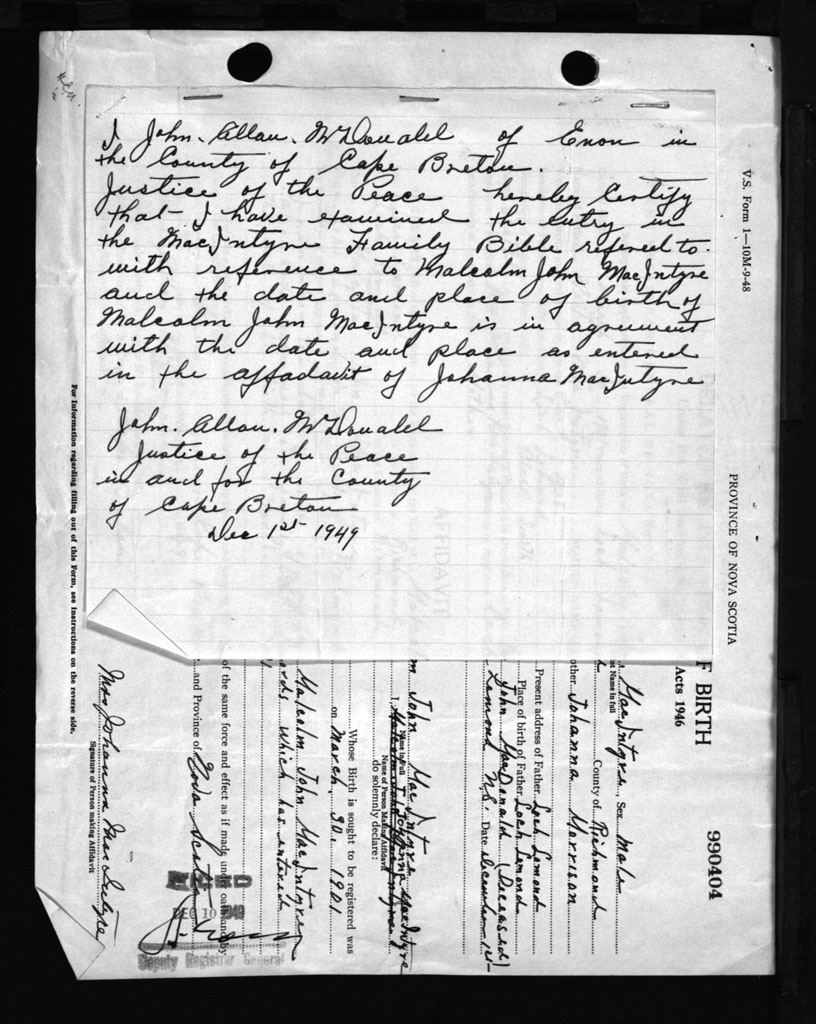 I John. Allan. McDonald of Enon in
the County of Cape Breton.
Justice of the Peace hereby Certify
that I have examined the entry in
the MacIntyre Family Bible refered to
with reference to Malcolm John MacIntyre
and the date and place of birth of
Malcolm John MacIntyre is in agreement
with the date and place as entered
in the affadavit of Johanna MacIntyre
John. Allan. McDonald
Justice of the Peace
in and for the County
of Cape Breton
Dec 1st 1949
V.S. Form 1—10M-9-48
PROVINCE OF NOVA SCOTIA
990404
F BIRTH
Acts 1946
MacIntyre Sex Male
Name in full
County of Richmond
other Johanna Morrison
Present address of Father Loch Lomond
Place of birth of Father Loch Lomond
John MacDonald (Deceased)
Lomond N.S. Date December 1st
John MacIntyre
Name in Full
I, Johanna MacIntyre
Name of Person Making Affidavit
do solemnly declare:
Whose Birth is sought to be registered was
on March. 30. 1901
Malcolm John MacIntyre
which was entered
of the same force and effect as if made under oath and by
and Province of Nova Scotia
DEC 10 1949
Deputy Registrar General
Mrs Johanna MacIntyre
Signature of Person making Affidavit
For Information regarding filling out of this Form, see Instructions on the reverse side.